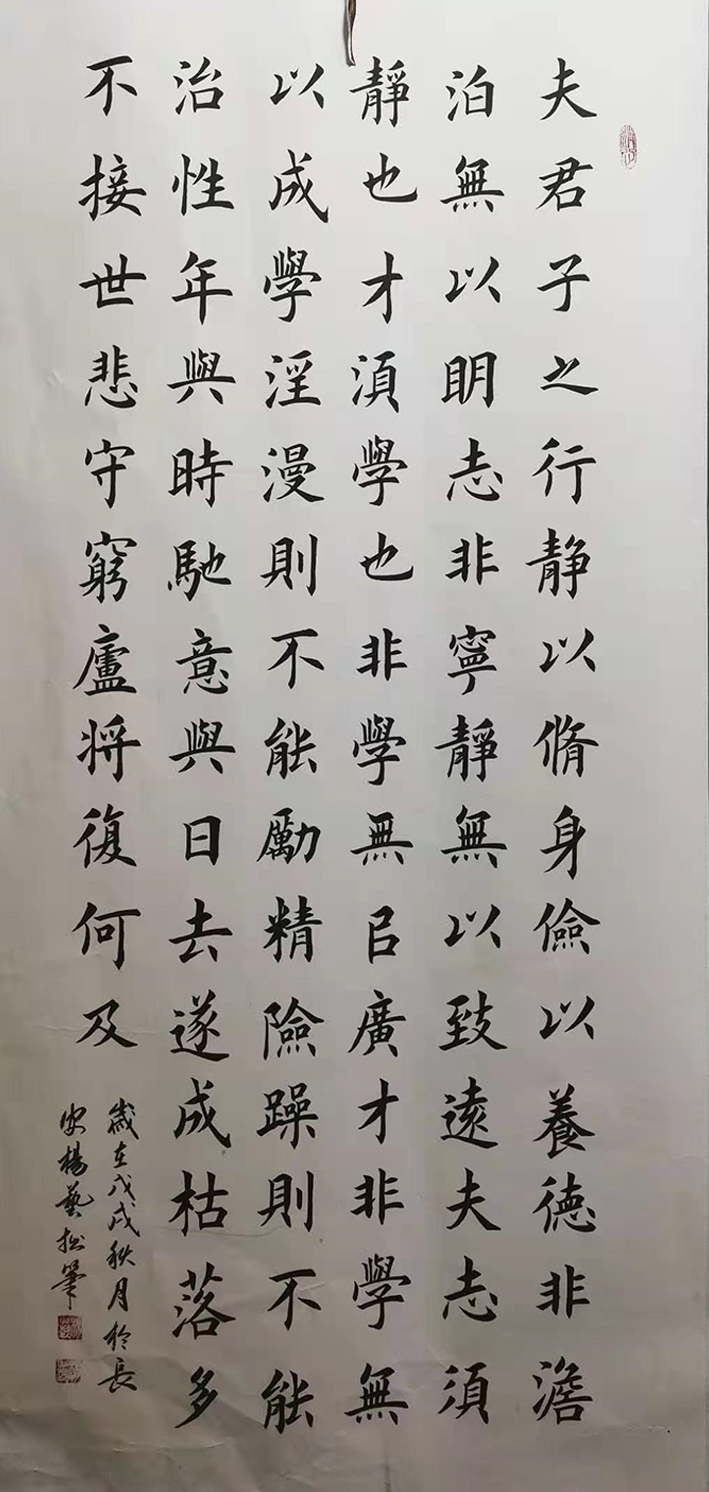 夫君子之行静以脩身儉以養德非澹
泊無以眀志非寧靜無以致遠夫志須
靜也才湏學也非學無㠯廣才非學無
以成學滛漫則不能勵精險躁則不能
治性年與時馳意與日去遂成枯落多
不接世悲守窮廬将復何及
歲在戊戌秋月於長
安楊藝松筆